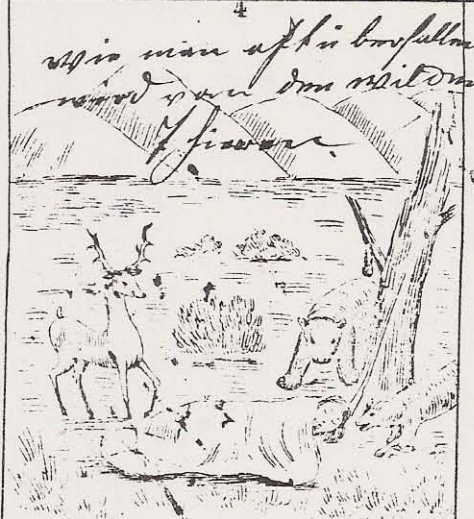 4
wie man oft überfallen
wird von den wilden
Thieren.